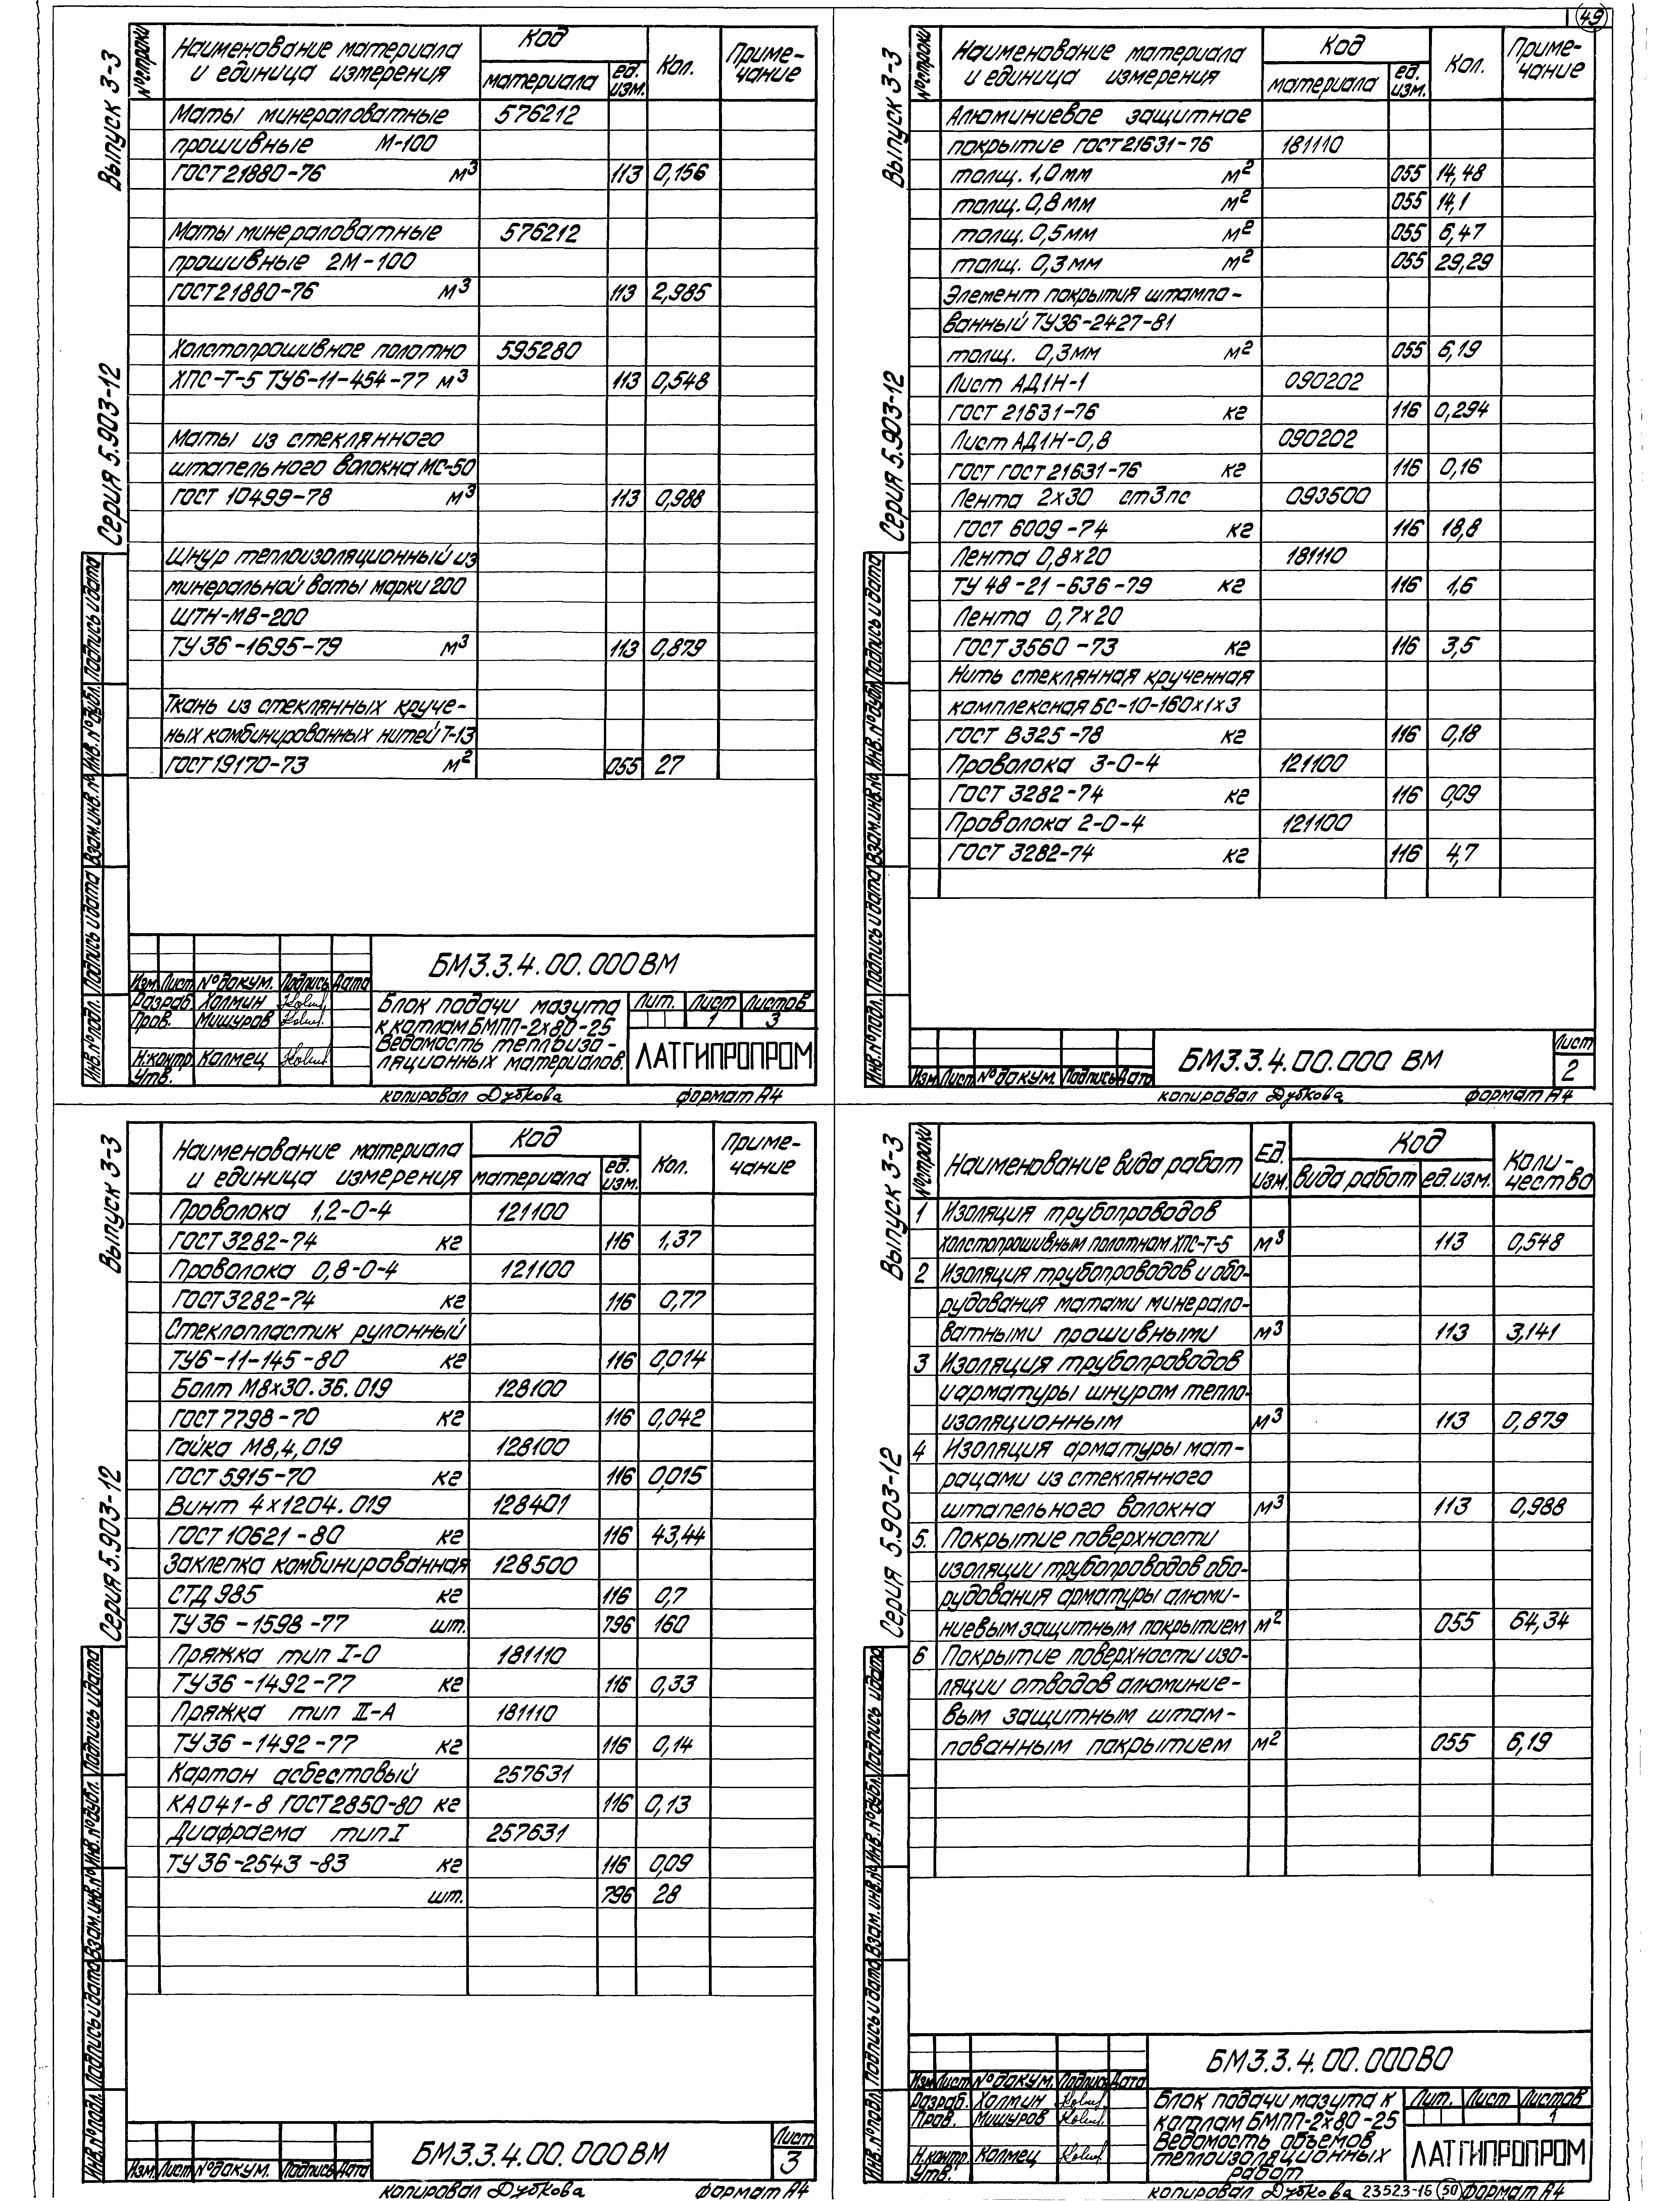 49
Выпуск 3-3
Серия 5.903-12
№ строки | Наименование материала и единица измерения | Код материала | Код ед. изм. | Кол. | Приме-чание
Маты минераловатные 576212
прошивные М-100
ГОСТ 21880-76 м³ 113 0,156
Маты минераловатные 576212
прошивные 2М-100
ГОСТ 21880-76 м³ 113 2,985
Холстопрошивное полотно 595280
ХПС-Т-5 ТУ6-11-454-77 м³ 113 0,548
Маты из стеклянного
штапельного волокна МС-50
ГОСТ 10499-78 м³ 113 0,988
Шнур теплоизоляционный из
минеральной ваты марки 200
ШТН-МВ-200
ТУ 36-1695-79 м³ 113 0,879
Ткань из стеклянных круче-
ных комбинированных нитей Т-13
ГОСТ 19170-73 м² 055 27
Инв. № подл. Подпись и дата Взам. инв. № Инв. № дубл. Подпись и дата
БМ3.3.4.00.000ВМ
Изм. Лист № докум. Подпись Дата
Разраб. Холмин
Пров. Мишуров
Н.контр. Колмец
Утв.
Блок подачи мазута
к котлам БМПП-2х80-25
Ведомость теплоизо-
ляционных материалов.
Лит. Лист Листов
1 3
ЛАТГИПРОПРОМ
копировал Дубкова формат А4
Выпуск 3-3
Серия 5.903-12
№ строки | Наименование материала и единица измерения | Код материала | Код ед. изм. | Кол. | Приме-чание
Алюминиевое защитное
покрытие ГОСТ 21631-76 181110
толщ. 1,0 мм м² 055 14,48
толщ. 0,8 мм м² 055 14,1
толщ. 0,5 мм м² 055 6,47
толщ. 0,3 мм м² 055 29,29
Элемент покрытия штампо-
ванный ТУ36-2427-81
толщ. 0,3 мм м² 055 6,19
Лист АД1Н-1 090202
ГОСТ 21631-76 кг 116 0,294
Лист АД1Н-0,8 090202
ГОСТ ГОСТ 21631-76 кг 116 0,16
Лента 2х30 ст3пс 093500
ГОСТ 6009-74 кг 116 18,8
Лента 0,8х20 181110
ТУ 48-21-636-79 кг 116 1,6
Лента 0,7х20
ГОСТ 3560-73 кг 116 3,5
Нить стеклянная крученная
комплексная БС-10-160х1х3
ГОСТ 8325-78 кг 116 0,18
Проволока 3-0-4 121100
ГОСТ 3282-74 кг 116 0,09
Проволока 2-0-4 121100
ГОСТ 3282-74 кг 116 4,7
Инв. № подл. Подпись и дата Взам. инв. № Инв. № дубл. Подпись и дата
Изм. Лист № докум. Подпись Дата
БМ3.3.4.00.000 ВМ
Лист
2
копировал Дубкова формат А4
Выпуск 3-3
Серия 5.903-12
Наименование материала и единица измерения | Код материала | Код ед. изм. | Кол. | Приме-чание
Проволока 1,2-0-4 121100
ГОСТ 3282-74 кг 116 1,37
Проволока 0,8-0-4 121100
ГОСТ 3282-74 кг 116 0,77
Стеклопластик рулонный
ТУ6-11-145-80 кг 116 0,014
Болт М8х30.36.019 128100
ГОСТ 7798-70 кг 116 0,042
Гайка М8,4,019 128100
ГОСТ 5915-70 кг 116 0,015
Винт 4х1204.019 128401
ГОСТ 10621-80 кг 116 43,44
Заклепка комбинированная 128500
СТД 985 кг 116 0,7
ТУ 36-1598-77 шт. 796 160
Пряжка тип I-О 181110
ТУ36-1492-77 кг 116 0,33
Пряжка тип II-А 181110
ТУ36-1492-77 кг 116 0,14
Картон асбестовый 257631
КАО41-8 ГОСТ 2850-80 кг 116 0,13
Диафрагма тип I 257631
ТУ 36-2543-83 кг 116 0,09
шт. 796 28
Инв. № подл. Подпись и дата Взам. инв. № Инв. № дубл. Подпись и дата
Изм. Лист № докум. Подпись Дата
БМ3.3.4.00.000ВМ
Лист
3
копировал Дубкова формат А4
Выпуск 3-3
Серия 5.903-12
№ строки | Наименование вида работ | Ед. изм. | Код вида работ | Код ед. изм. | Коли-чество
1 Изоляция трубопроводов
холстопрошивным полотном ХПС-Т-5 м³ 113 0,548
2 Изоляция трубопроводов и обо-
рудования матами минерало-
ватными прошивными м³ 113 3,141
3 Изоляция трубопроводов
и арматуры шнуром тепло-
изоляционным м³ 113 0,879
4 Изоляция арматуры мат-
рацами из стеклянного
штапельного волокна м³ 113 0,988
5. Покрытие поверхности
изоляции трубопроводов обо-
рудования арматуры алюми-
ниевым защитным покрытием м² 055 64,34
6 Покрытие поверхности изо-
ляции отводов алюминие-
вым защитным штам-
пованным покрытием м² 055 6,19
Инв. № подл. Подпись и дата Взам. инв. № Инв. № дубл. Подпись и дата
БМ3.3.4.00.000ВО
Изм. Лист № докум. Подпись Дата
Разраб. Холмин
Пров. Мишуров
Н.контр. Колмец
Утв.
Блок подачи мазута к
котлам БМПП-2х80-25
Ведомость объемов
теплоизоляционных
работ
Лит. Лист Листов
1
ЛАТГИПРОПРОМ
копировал Дубкова 23523-16 50 формат А4